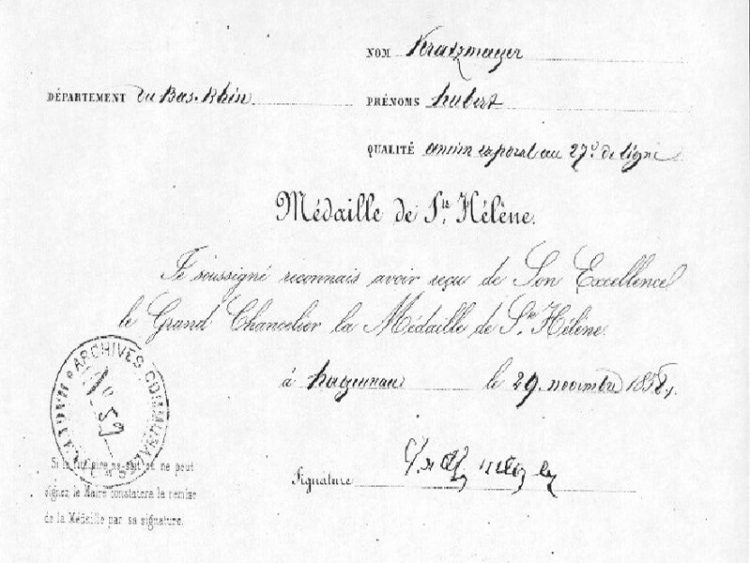 NOM Kratzmeyer
DÉPARTEMENT du Bas-Rhin
PRÉNOMS hubert
QUALITÉ ancien caporal au 27e de ligne
Médaille de Ste Hélène.
Je soussigné reconnais avoir reçu de Son Excellence
le Grand Chancelier la Médaille de Ste Hélène.
à haguenau le 29 novembre 185
ARCHIVES COMMUNALES HAGUENAU
Si le titulaire ne sait ou ne peut
signer, le Maire constatera la remise
de la Médaille par sa signature.
Signature